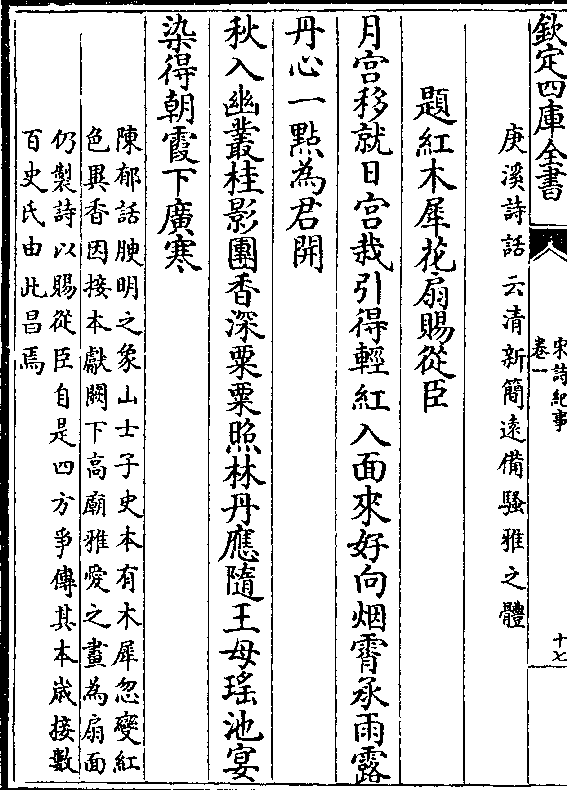 欽定四庫全書
宋詩紀事
卷一
十七
庚溪詩話云清新簡遠備騷雅之體
題紅木犀花扇賜從臣
月宫移就日宫栽引得輕紅入面來好向烟霄承雨露
丹心一點為君開
秋入幽叢桂影團香深粟粟照林丹應隨王母瑶池宴
染得朝霞下廣寒
陳郁話腴明之象山士子史本有木犀忽變紅
色異香因接本獻闕下高廟雅愛之畫為扇面
仍製詩以賜從臣自是四方爭傳其本歲接數
百史氏由此昌焉